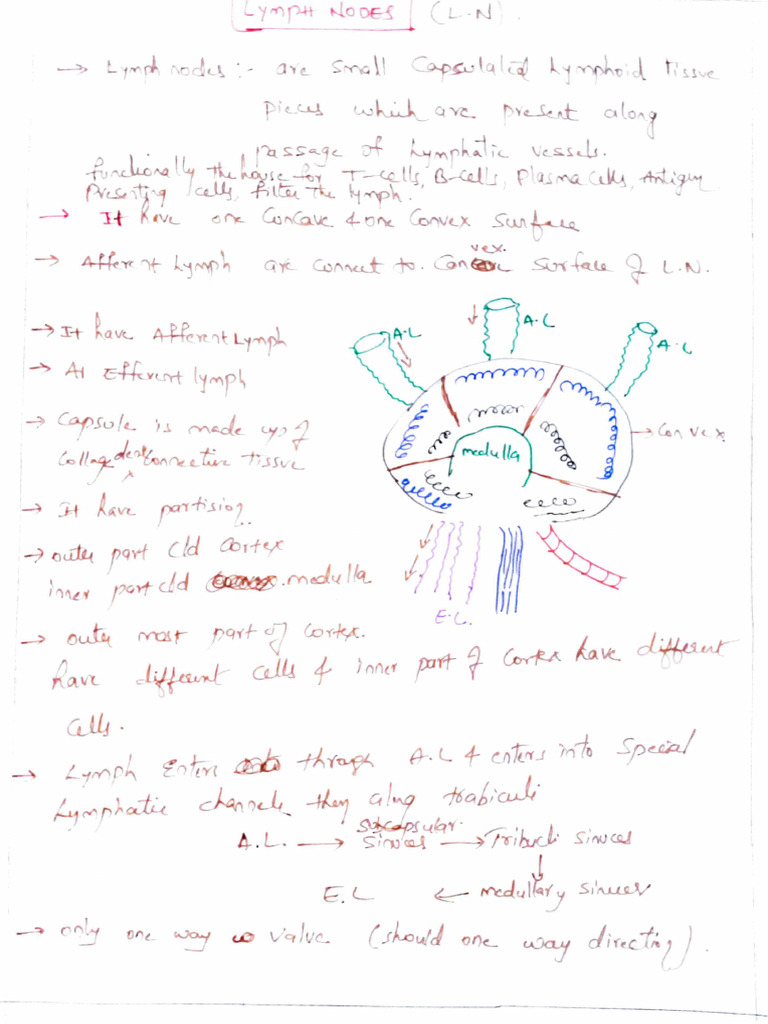 LYMPH NODES (L.N).
→ Lymph nodes :- are small Capsulated Lymphoid tissue
pieces which are present along
passage of Lymphatic vessels.
functionally the house for T-cells, B-cells, Plasma cells, Antigen
Presenting cells, filter the lymph.
→ It have one Concave & one Convex surface
→ Afferent Lymph are connect to Convex surface of L.N.
→ It have Afferent Lymph
→ A1 Efferent lymph
→ Capsule is made up of
Collage dense connective tissue
→ It have partising
→ outer part cld Cortex
inner part cld medulla
A.L
A.L
A.L
→ Convex
medulla
E.L.
→ outer most part of Cortex.
have different cells & inner part of Cortex have different
cells.
→ Lymph Enters through A.L & enters into Special
Lymphatic channels they along trabiculi
A.L. → subcapsular sinuces → Tribuculi sinuces
↓
E.L ← medullary sinuses
→ only one way valve (should one way directing).